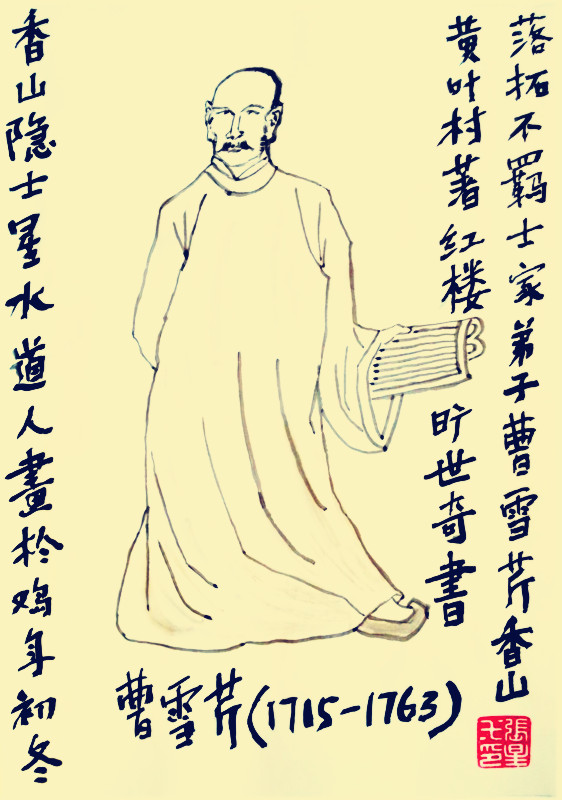 落拓不羁士家弟子曹雪芹香山
黄叶村著红楼
旷世奇書
香山隐士星水道人畫於鸡年初冬
曹雪芹(1715-1763)